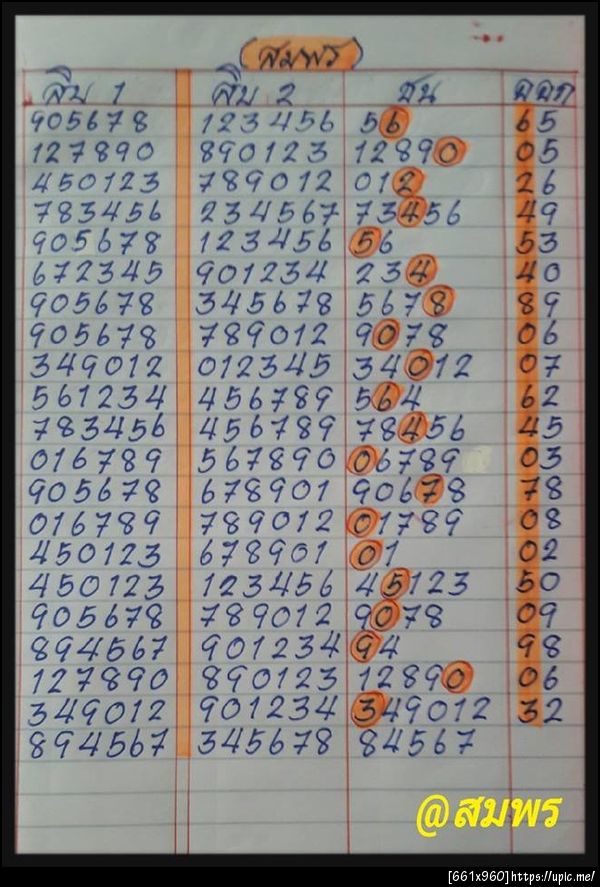 สมพร
สิบ 1 สิบ 2 ชน ออก
905678 123456 56 65
127890 890123 12890 05
450123 789012 012 26
783456 234567 73456 49
905678 123456 56 53
672345 901234 234 40
905678 345678 5678 89
905678 789012 9078 06
349012 012345 34012 07
561234 456789 564 62
783456 456789 78456 45
016789 567890 06789 03
905678 678901 90678 78
016789 789012 01789 08
450123 678901 01 02
450123 123456 45123 50
905678 789012 9078 09
894567 901234 94 98
127890 890123 12890 06
349012 901234 349012 32
894567 345678 84567
@สมพร
[661x960]https://upic.me/